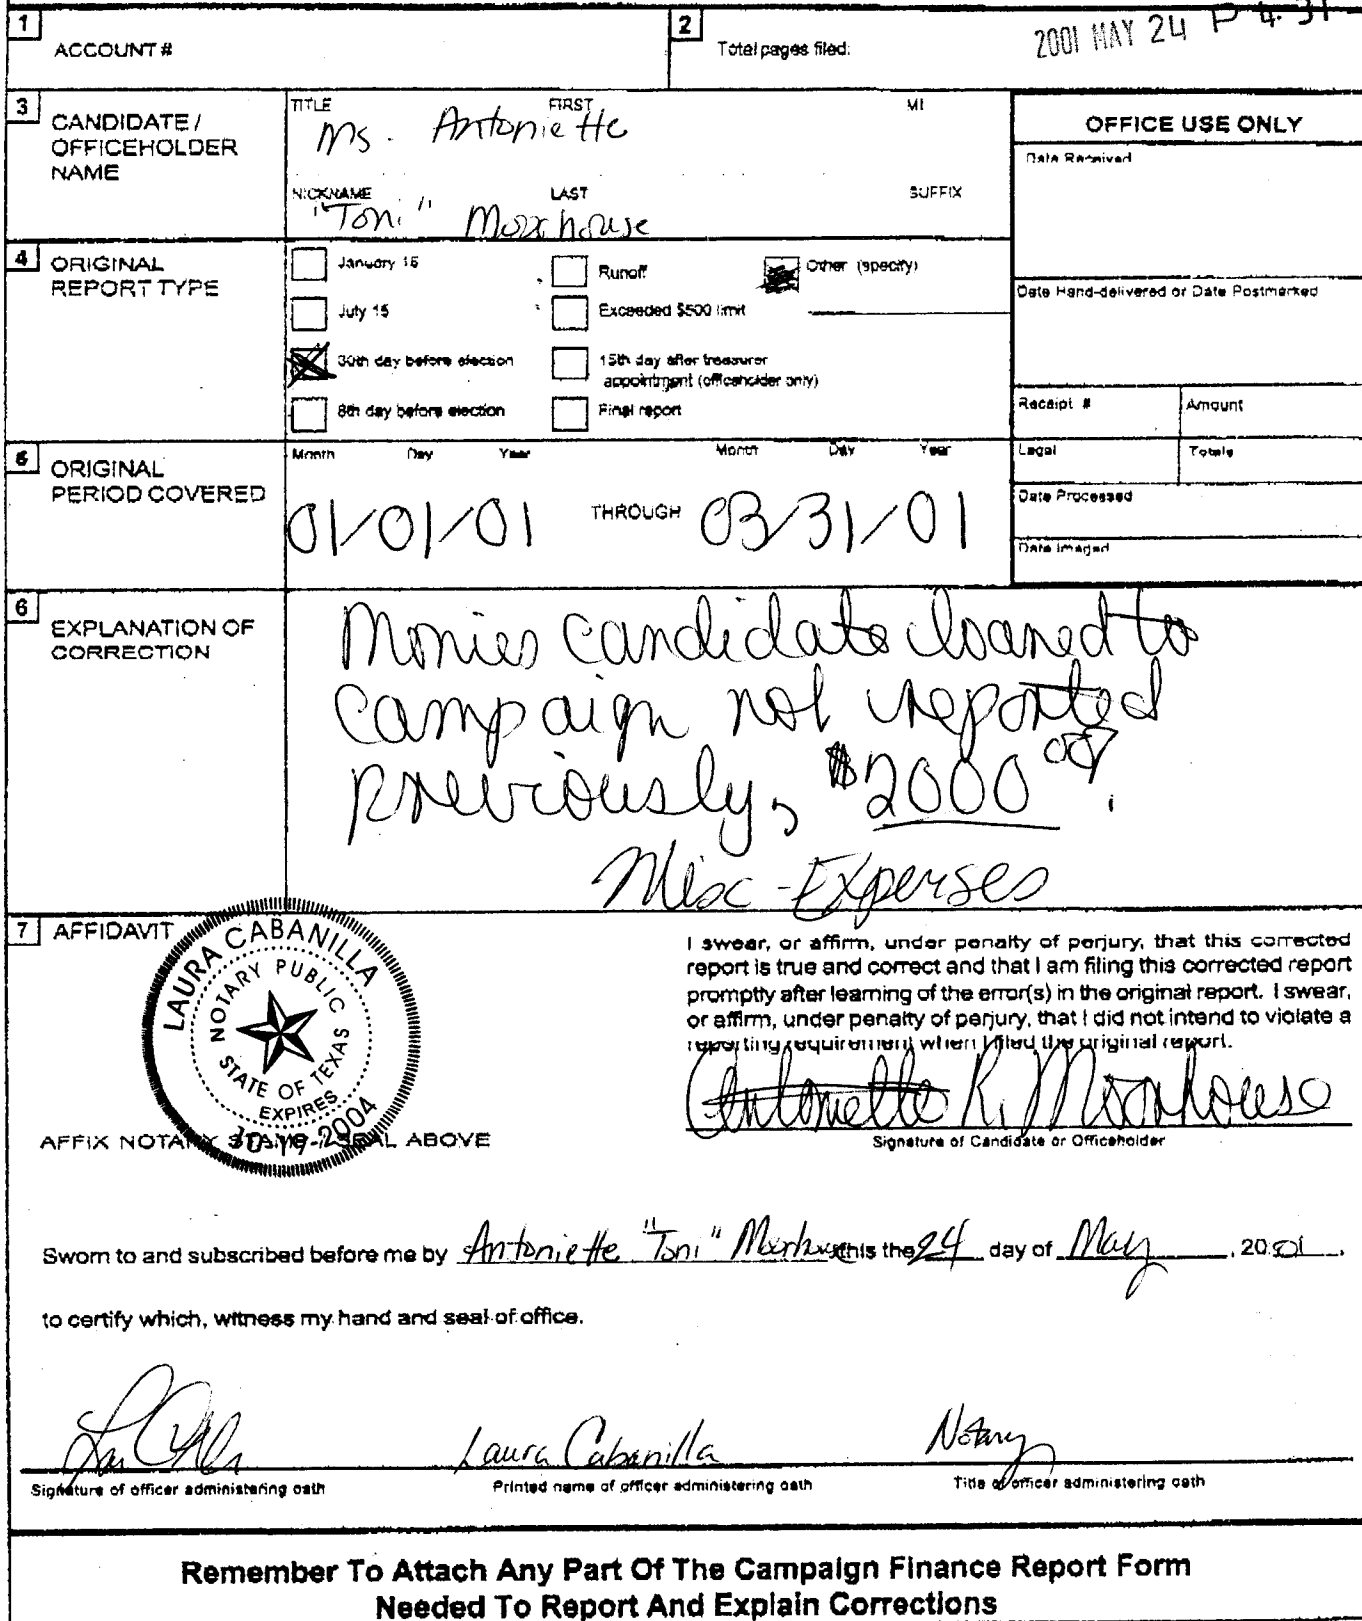 1 ACCOUNT #
2 Total pages filed:
2001 MAY 24 P 4:31
3 CANDIDATE / OFFICEHOLDER NAME
TITLE FIRST MI
Ms. Antoniette
NICKNAME LAST SUFFIX
"Toni" Moorhouse
OFFICE USE ONLY
Date Received
Date Hand-delivered or Date Postmarked
Receipt # Amount
Legal Totals
Date Processed
Date Imaged
4 ORIGINAL REPORT TYPE
January 15
July 15
30th day before election
8th day before election
Runoff
Exceeded $500 limit
15th day after treasurer
appointment (officeholder only)
Final report
Other (specify)
5 ORIGINAL PERIOD COVERED
Month Day Year Month Day Year
01/01/01 THROUGH 03/31/01
6 EXPLANATION OF CORRECTION
Monies candidate loaned to
campaign not reported
previously, $2000
Misc - Expenses
7 AFFIDAVIT
LAURA CABANILLA
NOTARY PUBLIC
STATE OF TEXAS
EXPIRES
10-19-2004
AFFIX NOTARY STAMP / SEAL ABOVE
I swear, or affirm, under penalty of perjury, that this corrected
report is true and correct and that I am filing this corrected report
promptly after learning of the error(s) in the original report. I swear,
or affirm, under penalty of perjury, that I did not intend to violate a
reporting requirement when I filed the original report.
Antoniette R. Moorhouse
Signature of Candidate or Officeholder
Sworn to and subscribed before me by Antoniette "Toni" Moorhouse this the 24 day of May, 2001.
to certify which, witness my hand and seal of office.
Laura Cabanilla
Notary
Signature of officer administering oath
Printed name of officer administering oath
Title of officer administering oath
Remember To Attach Any Part Of The Campaign Finance Report Form
Needed To Report And Explain Corrections